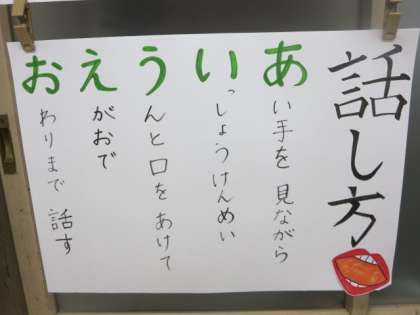 話し方
あい手を見ながら
いっしょうけんめい
うんと口をあけて
えがおで
おわりまで話す